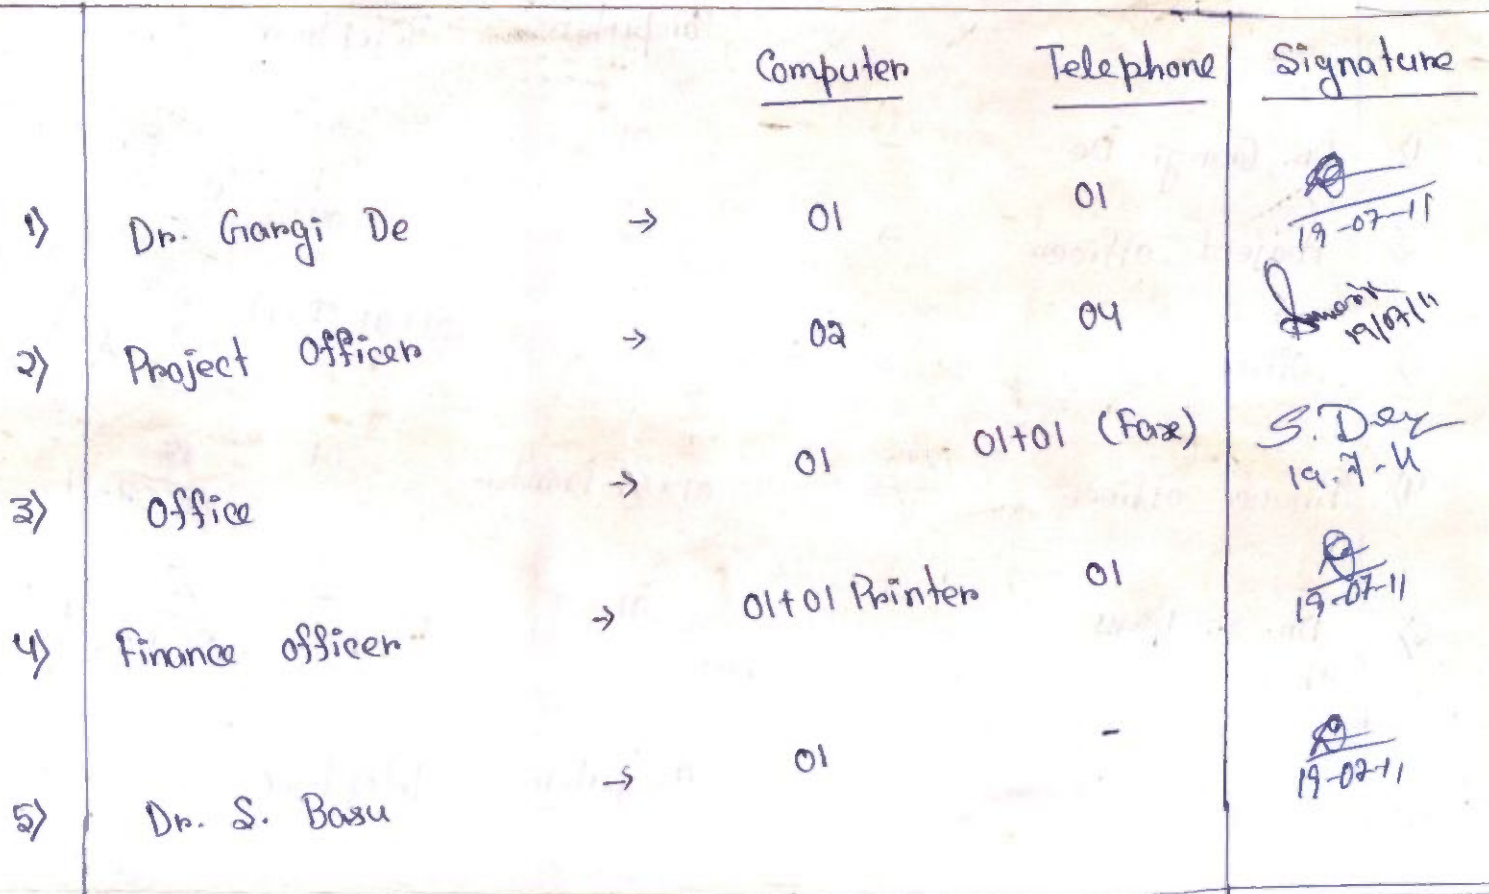 Computer Telephone Signature
1) Dr. Gargi De → 01 01 19-07-11
2) Project Officer → 02 04 19/07/11
3) Office → 01 01+01 (Fax) S. Dey 19.7.11
4) Finance officer → 01+01 Printer 01 19-07-11
5) Dr. S. Basu → 01 - 19-07-11